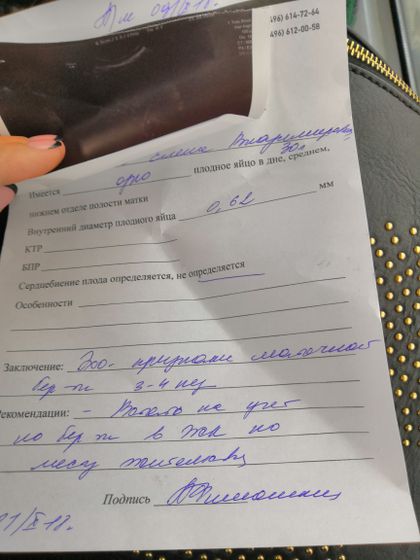 496) 614-72-64
496) 612-00-58
30л
Имеется одно плодное яйцо в дне, среднем,
нижнем отделе полости матки
Внутренний диаметр плодного яйца 0,62 мм
КТР
БПР
Сердцебиение плода определяется, не определяется
Особенности
Заключение: Эхо-признаки маточной
бер-ти 3-4 нед
Рекомендации: - Встать на учет
по бер-ти в ЖК по
месту жительства
Подпись